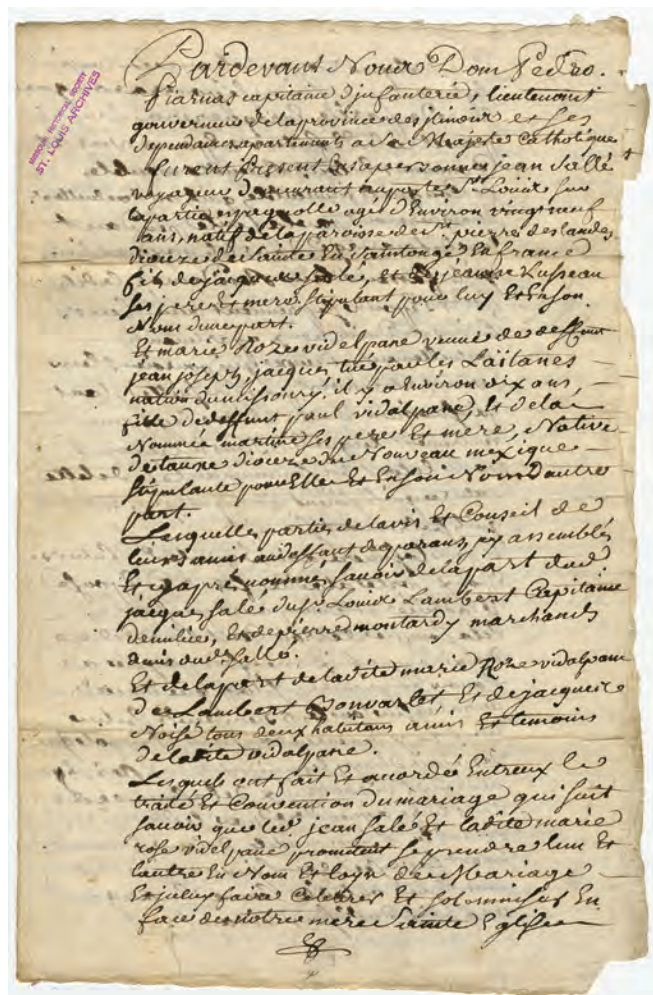 MISSOURI HISTORICAL SOCIETY
ST. LOUIS ARCHIVES
Pardevant Nous Dom Pedro.
Piarnas capitaine d'infanterie, lieutenant
gouverneur de la province des ilinoix et ses
dependances apartenants a Sa Majesté Catholique
furent present en sa personnes jean Sallé
voyageur demeurant au poste St. Louix sur
la partie espagnolle agé d'Environ vingt neuf
ans, natif de la paroisse de St. pierre des landes
dioceze de Sainte En Saintonge, En france
fils de jacque Salé, et de jeanne Lusseau
ses pere et mere, Stipulant pour luy Et En son
Nom d'une part.
Et marie Roze vidalpane veuve de deffunt
jean joseph, jacques tué par les Laitanes
nation du missoury, il y a Environ dix ans,
fille de deffunt paul vidalpane, Et de la
Nommée martine ses pere Et mere, Native
de taune dioceze du Nouveau mexique
Stipulante pour Elle Et En son Nom D'autre
part.
Lesquelles parties de lavis Et Conseil de
leurs amis au deffaut de parans, y assemblés
Et cy aprés nommés, Savoir de la part dud.
jacque Salé du Sr. Louix Lambert Capitaine
de milice, Et de pierre montardy marchands
amis dud. Salle.
Et de la part de la dite marie Roze vidalpane
de Lambert Bonvarlet Et de jacque
Noise tous deux habitans amis Et temoins
de la dite vidalpane.
Lesquels ont fait Et accordée Entreux le
traité Et Convention du mariage qui suit
savoir que led. jean Salé Et la dite marie
rose vidalpane promettent se prendre lun Et
lautre En Nom Et loys de Mariage
Et iceluy faire Celebrer Et solemniser En
face de notre mere Sainte Eglise